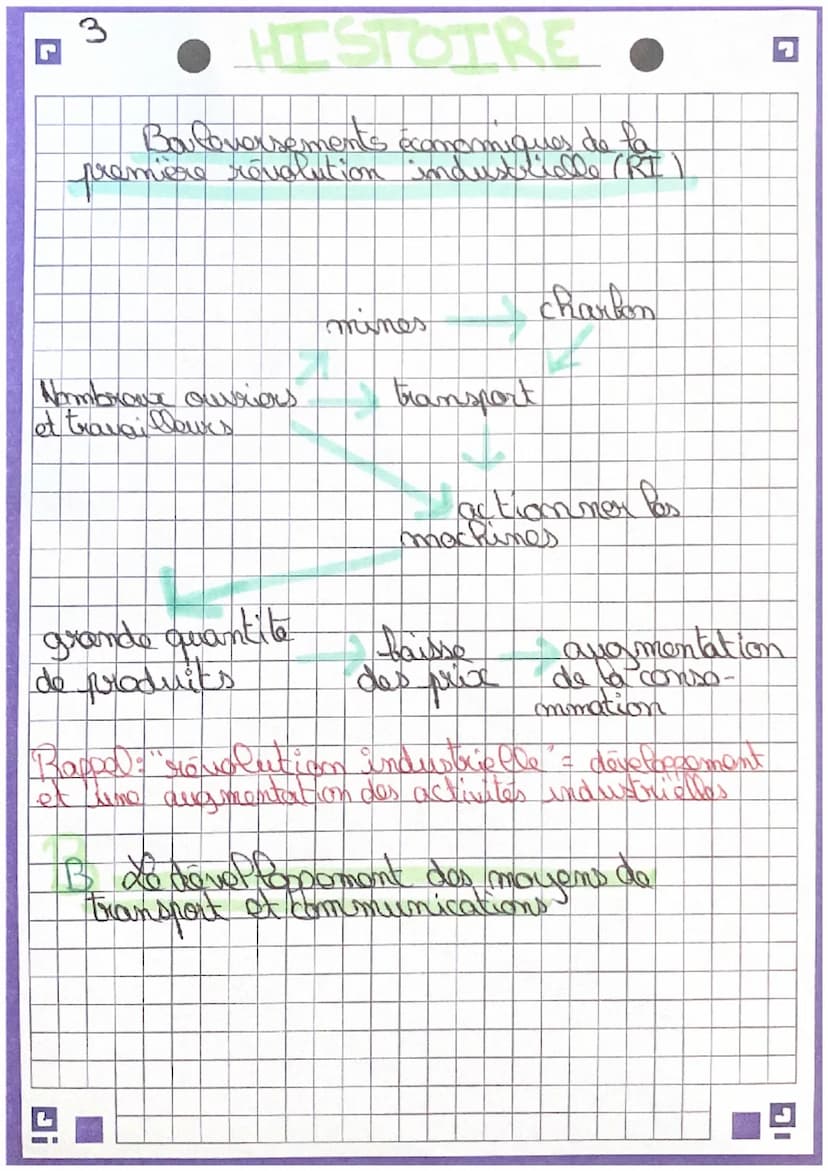 3
HISTOIRE
Bouloversements économiques de la
première révolution industrielle (RI)
mines → charbon
Nombreux ouvriers → transport
et travailleurs
actionner les
machines
grande quantité → baisse → augmentation
de produits des prix de la conso-
mmation
Rappel : "révolution industrielle" = développement
et une augmentation des activités industrielles
B Le dévelloppement des moyens de
transport et communications